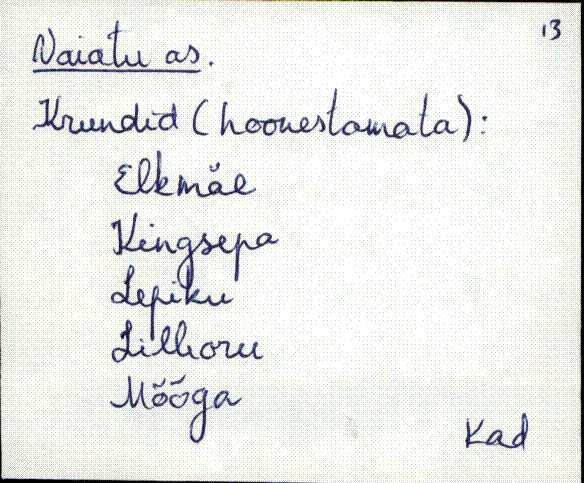 13
Vaiatu as.
Krundid (hoonestamata):
Elkmäe
Kingsepa
Lepiku
Lilloru
Mõõga
Kad